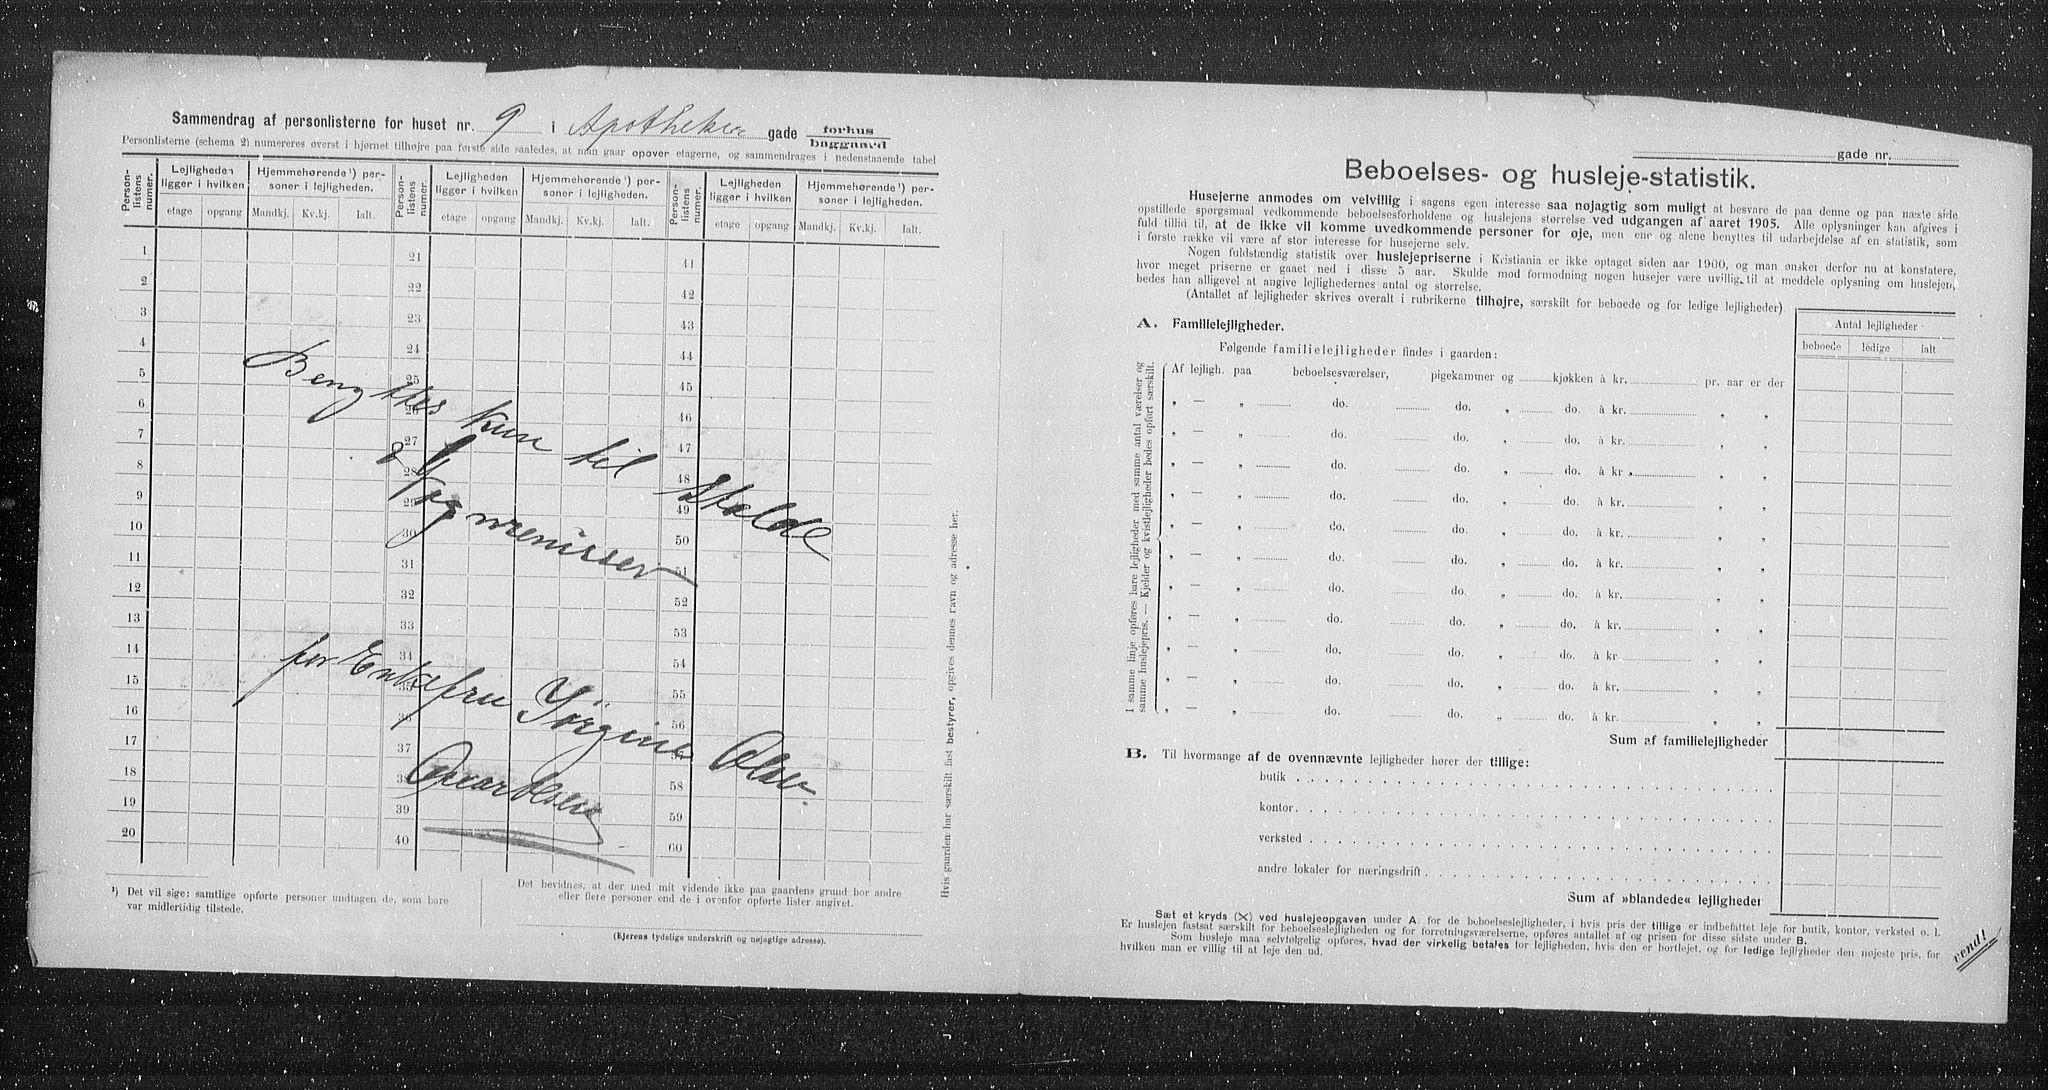 Sammendrag af personlisterne for huset nr. 9 i Apotheker gade forhus
baggaard
Personlisterne (schema 2) numereres øverst i hjørnet tilhøjre paa første side saaledes, at man gaar opover etagerne, og sammendrages i nedenstaaende tabel
Person-listens numer.
Lejligheden ligger i hvilken
etage opgang
Hjemmehørende¹) personer i lejligheden.
Mandkj. Kv.kj. Ialt.
Person-listens numer.
Lejligheden ligger i hvilken
etage opgang
Hjemmehørende¹) personer i lejligheden.
Mandkj. Kv.kj. Ialt.
Person-listens numer.
Lejligheden ligger i hvilken
etage opgang
Hjemmehørende¹) personer i lejligheden.
Mandkj. Kv.kj. Ialt.
1 21 41
2 22 42
3 23 43
4 24 44
5 25 45
6 26 46
7 27 47
8 28 48
9 29 49
10 30 50
11 31 51
12 32 52
13 33 53
14 34 54
15 35 55
16 36 56
17 37 57
18 38 58
19 39 59
20 40 60
Bengttes kun til Stalde
& Vognremisser
for Enkefru Jørgine Olsen
Oscar Olsen
Hvis gaarden har særskilt fast bestyrer, opgives dennes navn og adresse her.
¹) Det vil sige: samtlige opførte personer undtagen de, som bare
var midlertidig tilstede.
Det bevidnes, at der med mit vidende ikke paa gaardens grund bor andre
eller flere personer end de i ovenfor opførte lister angivet.
(Ejerens tydelige underskrift og nøjagtige adresse).
gade nr.
Beboelses- og husleje-statistik.
Husejerne anmodes om velvillig i sagens egen interesse saa nøjagtig som muligt at besvare de paa denne og paa næste side
opstillede spørgsmaal vedkommende beboelsesforholdene og huslejens størrelse ved udgangen af aaret 1905. Alle oplysninger kan afgives i
fuld tillid til, at de ikke vil komme uvedkommende personer for øje, men ene og alene benyttes til udarbejdelse af en statistik, som
i første række vil være af stor interesse for husejerne selv.
Nogen fuldstændig statistik over huslejepriserne i Kristiania er ikke optaget siden aar 1900, og man ønsker derfor nu at konstatere,
hvor meget priserne er gaaet ned i disse 5 aar. Skulde mod formodning nogen husejer være uvillig til at meddele oplysning om huslejen,
bedes han alligevel at angive lejlighedernes antal og størrelse.
(Antallet af lejligheder skrives overalt i rubrikerne tilhøjre, særskilt for beboede og for ledige lejligheder)
A. Familielejligheder.
Antal lejligheder
beboede ledige ialt
Følgende familielejligheder findes i gaarden:
I samme linje opføres bare lejligheder med samme antal værelser og
samme huslejepris. — Kjelder og kvistlejligheder bedes opført særskilt.
Af lejligh. paa beboelsesværelser, pigekammer og kjøkken à kr. pr. aar er der
„ — „ do. do. „ do. à kr. „ „
„ — „ do. do. „ do. à kr. „ „
„ — „ do. do. „ do. à kr. „ „
„ — „ do. do. „ do. à kr. „ „
„ — „ do. do. „ do. à kr. „ „
„ — „ do. do. „ do. à kr. „ „
„ — „ do. do. „ do. à kr. „ „
„ — „ do. do. „ do. à kr. „ „
„ — „ do. do. „ do. à kr. „ „
„ — „ do. do. „ do. à kr. „ „
„ — „ do. do. „ do. à kr. „ „
Sum af familielejligheder
B. Til hvormange af de ovennævnte lejligheder hører der tillige:
butik
kontor
verksted
andre lokaler for næringsdrift
Sum af »blandede« lejligheder
Sæt et kryds (X) ved huslejeopgaven under A. for de beboelseslejligheder, i hvis pris der tillige er indbefattet leje for butik, kontor, verksted o. l.
Er huslejen fastsat særskilt for beboelseslejligheden og for forretningsværelserne, opføres antallet af og prisen for disse sidste under B.
Som husleje maa selvfølgelig opføres, hvad der virkelig betales for lejligheden, hvis den er bortlejet, og for ledige lejligheder den nøjeste pris, for
hvilken man er villig til at leje den ud.
vend!